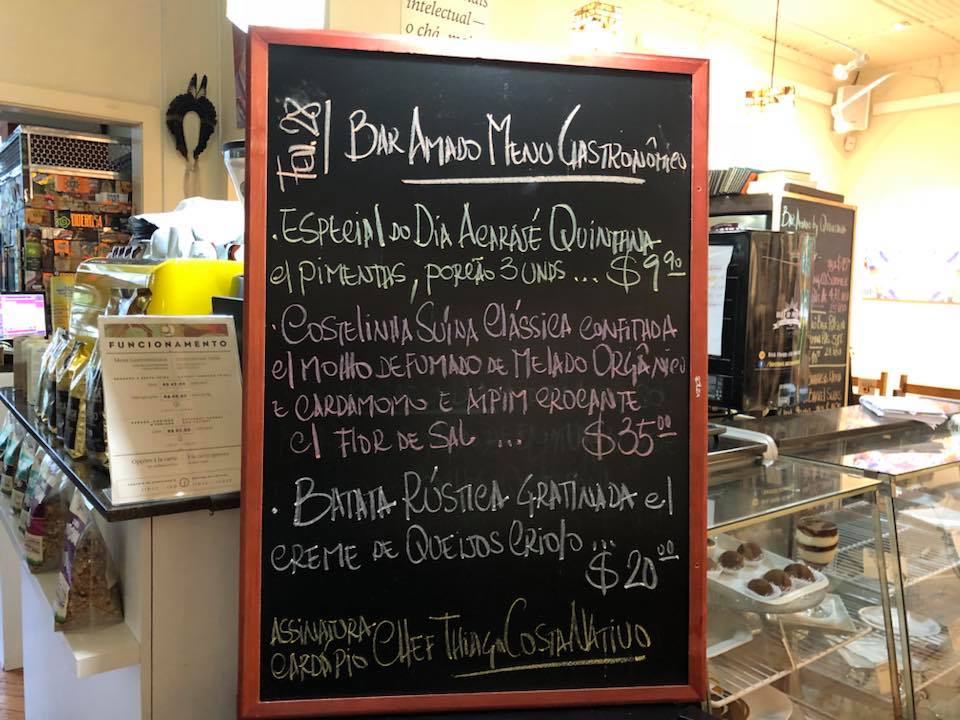 intelectual—
o chá
Tel. 28
BAR AMADO MENU GASTRONÔMICO
. ESPECIAL DO DIA ACARAJÉ QUINTANA
c/ PIMENTAS, PORÇÃO 3 UNDS ... $ 9,90
. COSTELINHA SUÍNA CLÁSSICA CONFITADA
c/ MOLHO DEFUMADO DE MELADO ORGÂNICO
E CARDAMOMO E AIPIM CROCANTE
c/ FLOR DE SAL ... $35,00
. BATATA RÚSTICA GRATINADA c/
CREME DE QUEIJOS CRIOLO ...
$ 20,00
ASSINATURA
CARDÁPIO CHEF THIAGO COSTA NATIVO
FUNCIONAMENTO
Opções à la carte
BAR AMADO by QUINTANA